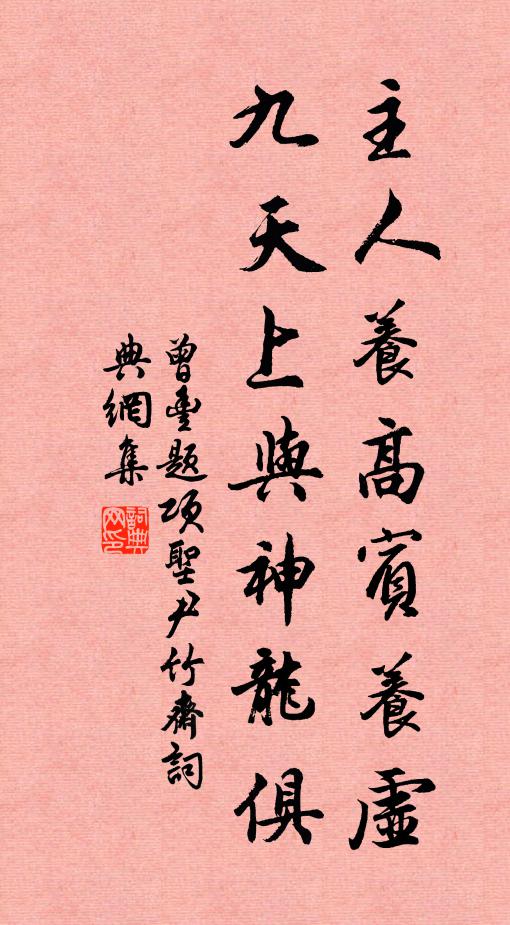 主人養高賓養虛
九天上與神龍俱
曾豐題項聖尹竹齋詞
典網集
詞典網印